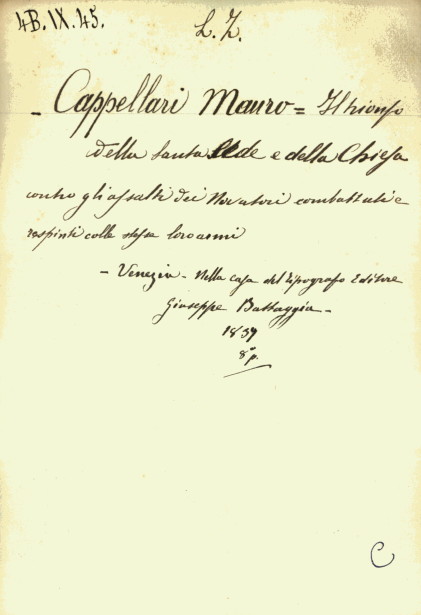 4B. IX. 45.
L. Z.
- Cappellari Mauro = Il trionfo
della Santa Sede e della Chiesa
contro gli assalti dei Novatori combattuti e
respinti colle stesse loro armi
- Venezia - Nella casa del tipografo Editore
Giuseppe Battaggia -
1837
8° p.
C